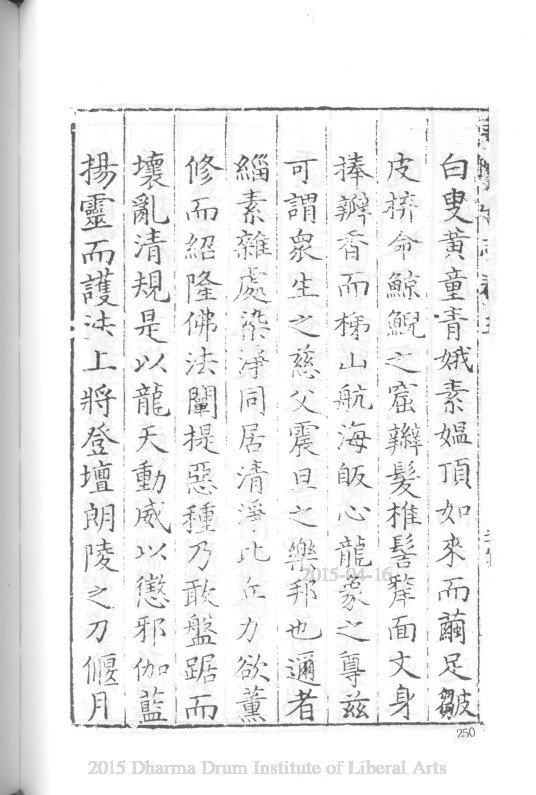 白叟黃童青娥素媼頂如來而繭足皺
皮捹命鯨鯢之窟辮髮椎髻犂面文身
捧瓣香而梯山航海皈心龍象之尊兹
可謂衆生之慈父震旦之樂邦也邇者
緇素雜處染淨同居清淨比丘力欲薰
修而紹隆佛法闡提惡種乃敢盤踞而
壞亂清規是以龍天動威以懲邪伽藍
揚靈而護法上將登壇朗陵之刀偃月
250
2015-04-16
2015 Dharma Drum Institute of Liberal Arts